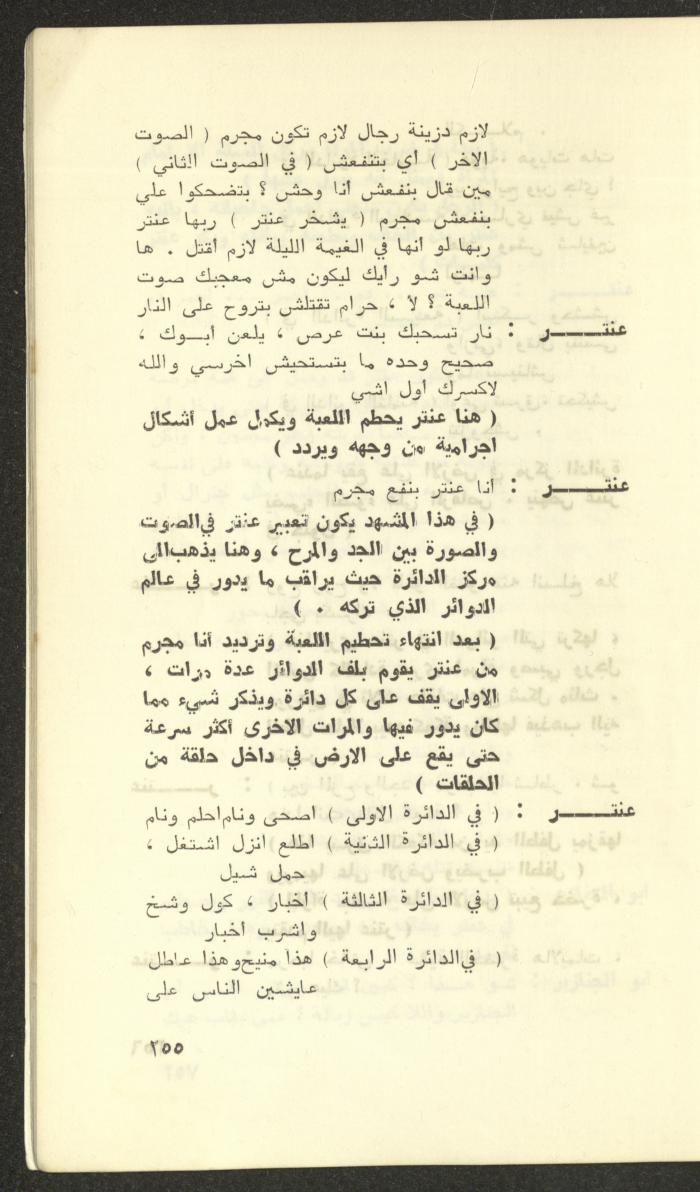 لازم دزينة رجال لازم تكون مجرم ( الصوت
الاخر ) أي بتنفعش ( في الصوت الثاني )
مين قال بنفعش أنا وحش ؟ بتضحكوا علي
بنفعش مجرم ( يشخر عنتر ) ربها عنتر
ربها لو أنها في الغيمة الليلة لازم أقتل . ها
وانت شو رأيك ليكون مش معجبك صوت
اللعبة ؟ لأ ، حرام تقتلش بتروح على النار
عنتــــــر : نار تسحبك بنت عرص ، يلعن أبــوك ،
صحيح وحده ما بتستحيش اخرسي والله
لاكسرك أول اشي
( هنا عنتر يحطم اللعبة ويكمل عمل أشكال
اجرامية من وجهه ويردد )
عنتــــــر : أنا عنتر بنفع مجرم
( في هذا المشهد يكون تعبير عنتر في الصوت
والصورة بين الجد والمرح ، وهنا يذهب الى
مركز الدائرة حيث يراقب ما يدور في عالم
الدوائر الذي تركه . )
( بعد انتهاء تحطيم اللعبة وترديد أنا مجرم
من عنتر يقوم بلف الدوائر عدة مرات ،
الاولى يقف على كل دائرة ويذكر شيء مما
كان يدور فيها والمرات الاخرى أكثر سرعة
حتى يقع على الارض في داخل حلقة من
الحلقات )
عنتــــــر : ( في الدائرة الاولى ) اصحى ونام احلم ونام
( في الدائرة الثنية ) اطلع انزل اشتغل ،
حمل شيل
( في الدائرة الثالثة ) أخبار ، كول وشخ
واشرب أخبار
( في الدائرة الرابعة ) هذا منيح وهذا عاطل
عايشين الناس على
٢٥٥